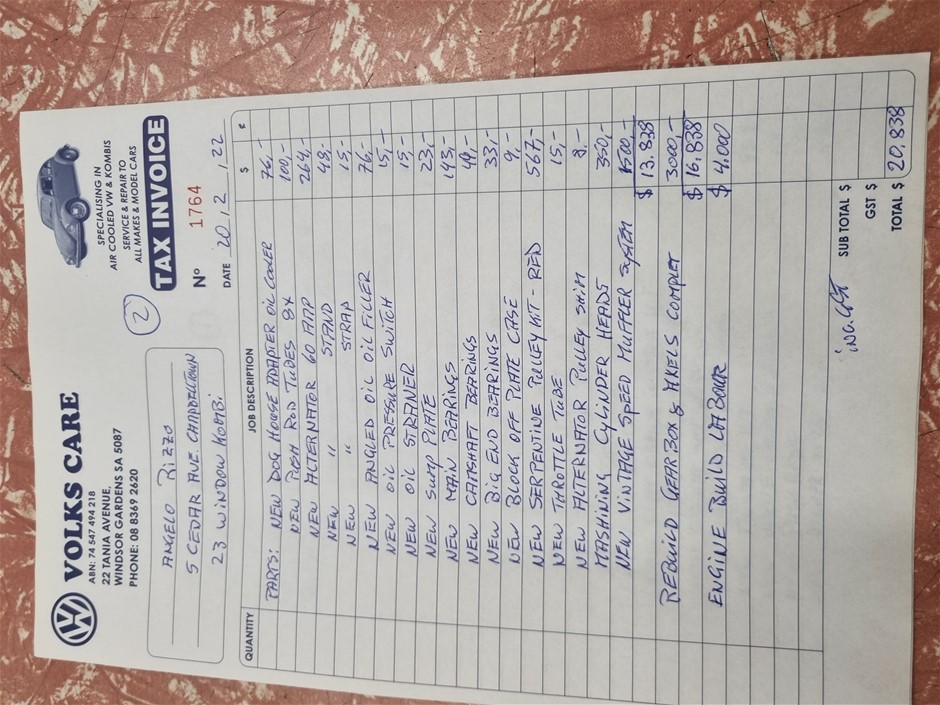 VOLKS CARE
ABN: 74 547 494 218
22 TANIA AVENUE,
WINDSOR GARDENS SA 5087
PHONE: 08 8369 2620
SPECIALISING IN
AIR COOLED VW & KOMBIS
SERVICE & REPAIR TO
ALL MAKES & MODEL CARS
TAX INVOICE
2
Nº 1764
DATE 20/12/22
ANGELO RIZZO
5 CEDAR AVE. CAMPBELLTOWN
23 WINDOW KOMBI
QUANTITY JOB DESCRIPTION $ ¢
PARTS: NEW DOG HOUSE ADAPTER OIL COOLER 76,-
NEW PUSH ROD TUBES 8X 100,-
NEW ALTERNATOR 60 AMP 264,-
NEW " STAND 48,-
NEW " STRAP 15,-
NEW ANGLED OIL FILLER 76,-
NEW OIL PRESSURE SWITCH 15,-
NEW OIL STRAINER 15,-
NEW SUMP PLATE 23,-
NEW MAIN BEARINGS 143,-
NEW CAMSHAFT BEARINGS 49,-
NEW BIG END BEARINGS 33,-
NEW BLOCK OFF PLATE CASE 9,-
NEW SERPENTINE PULLEY KIT - RED 567,-
NEW THROTTLE TUBE 15,-
NEW ALTERNATOR PULLEY SHIM 8,-
MASHINING CYLINDER HEADS 350,-
NEW VINTAGE SPEED MUFFLER SYSTEM 1500,-
$ 13.838
REBUILD GEARBOX & AXELS COMPLET 3000,-
$ 16,838
ENGINE BUILD LABOUR $ 4.000
INC. GST
SUB TOTAL $
GST $
TOTAL $ 20,838